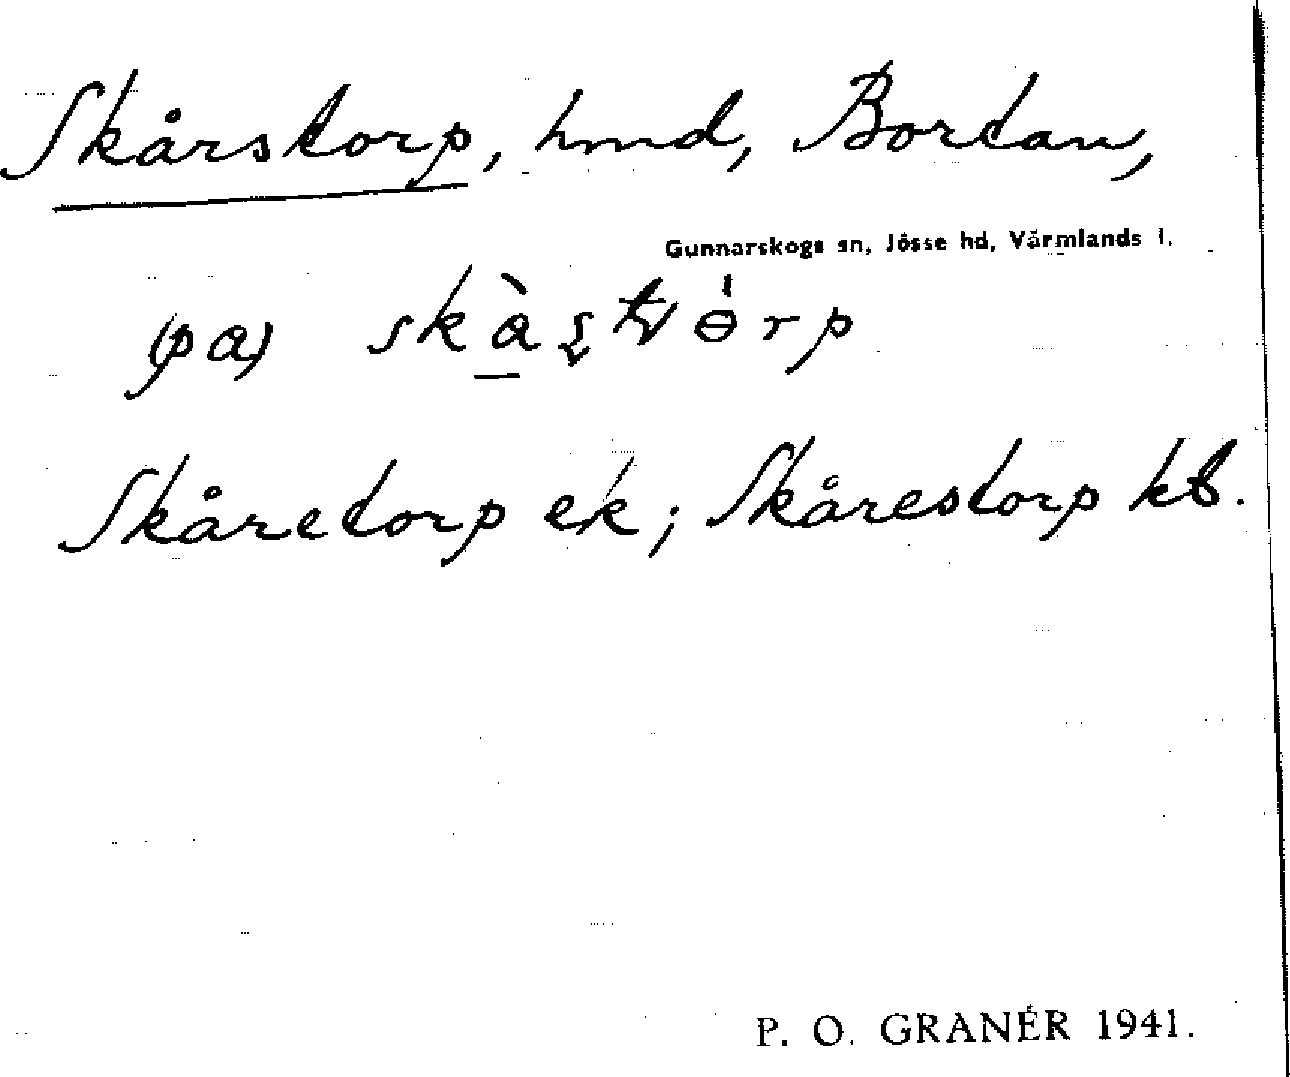 Skårstorp, hmd, Bortan,
Gunnarskogs sn, Jösse hd, Värmlands l.
(pa)
Skåretorp ek; Skårestorp kb.
P. O. GRANÉR 1941.